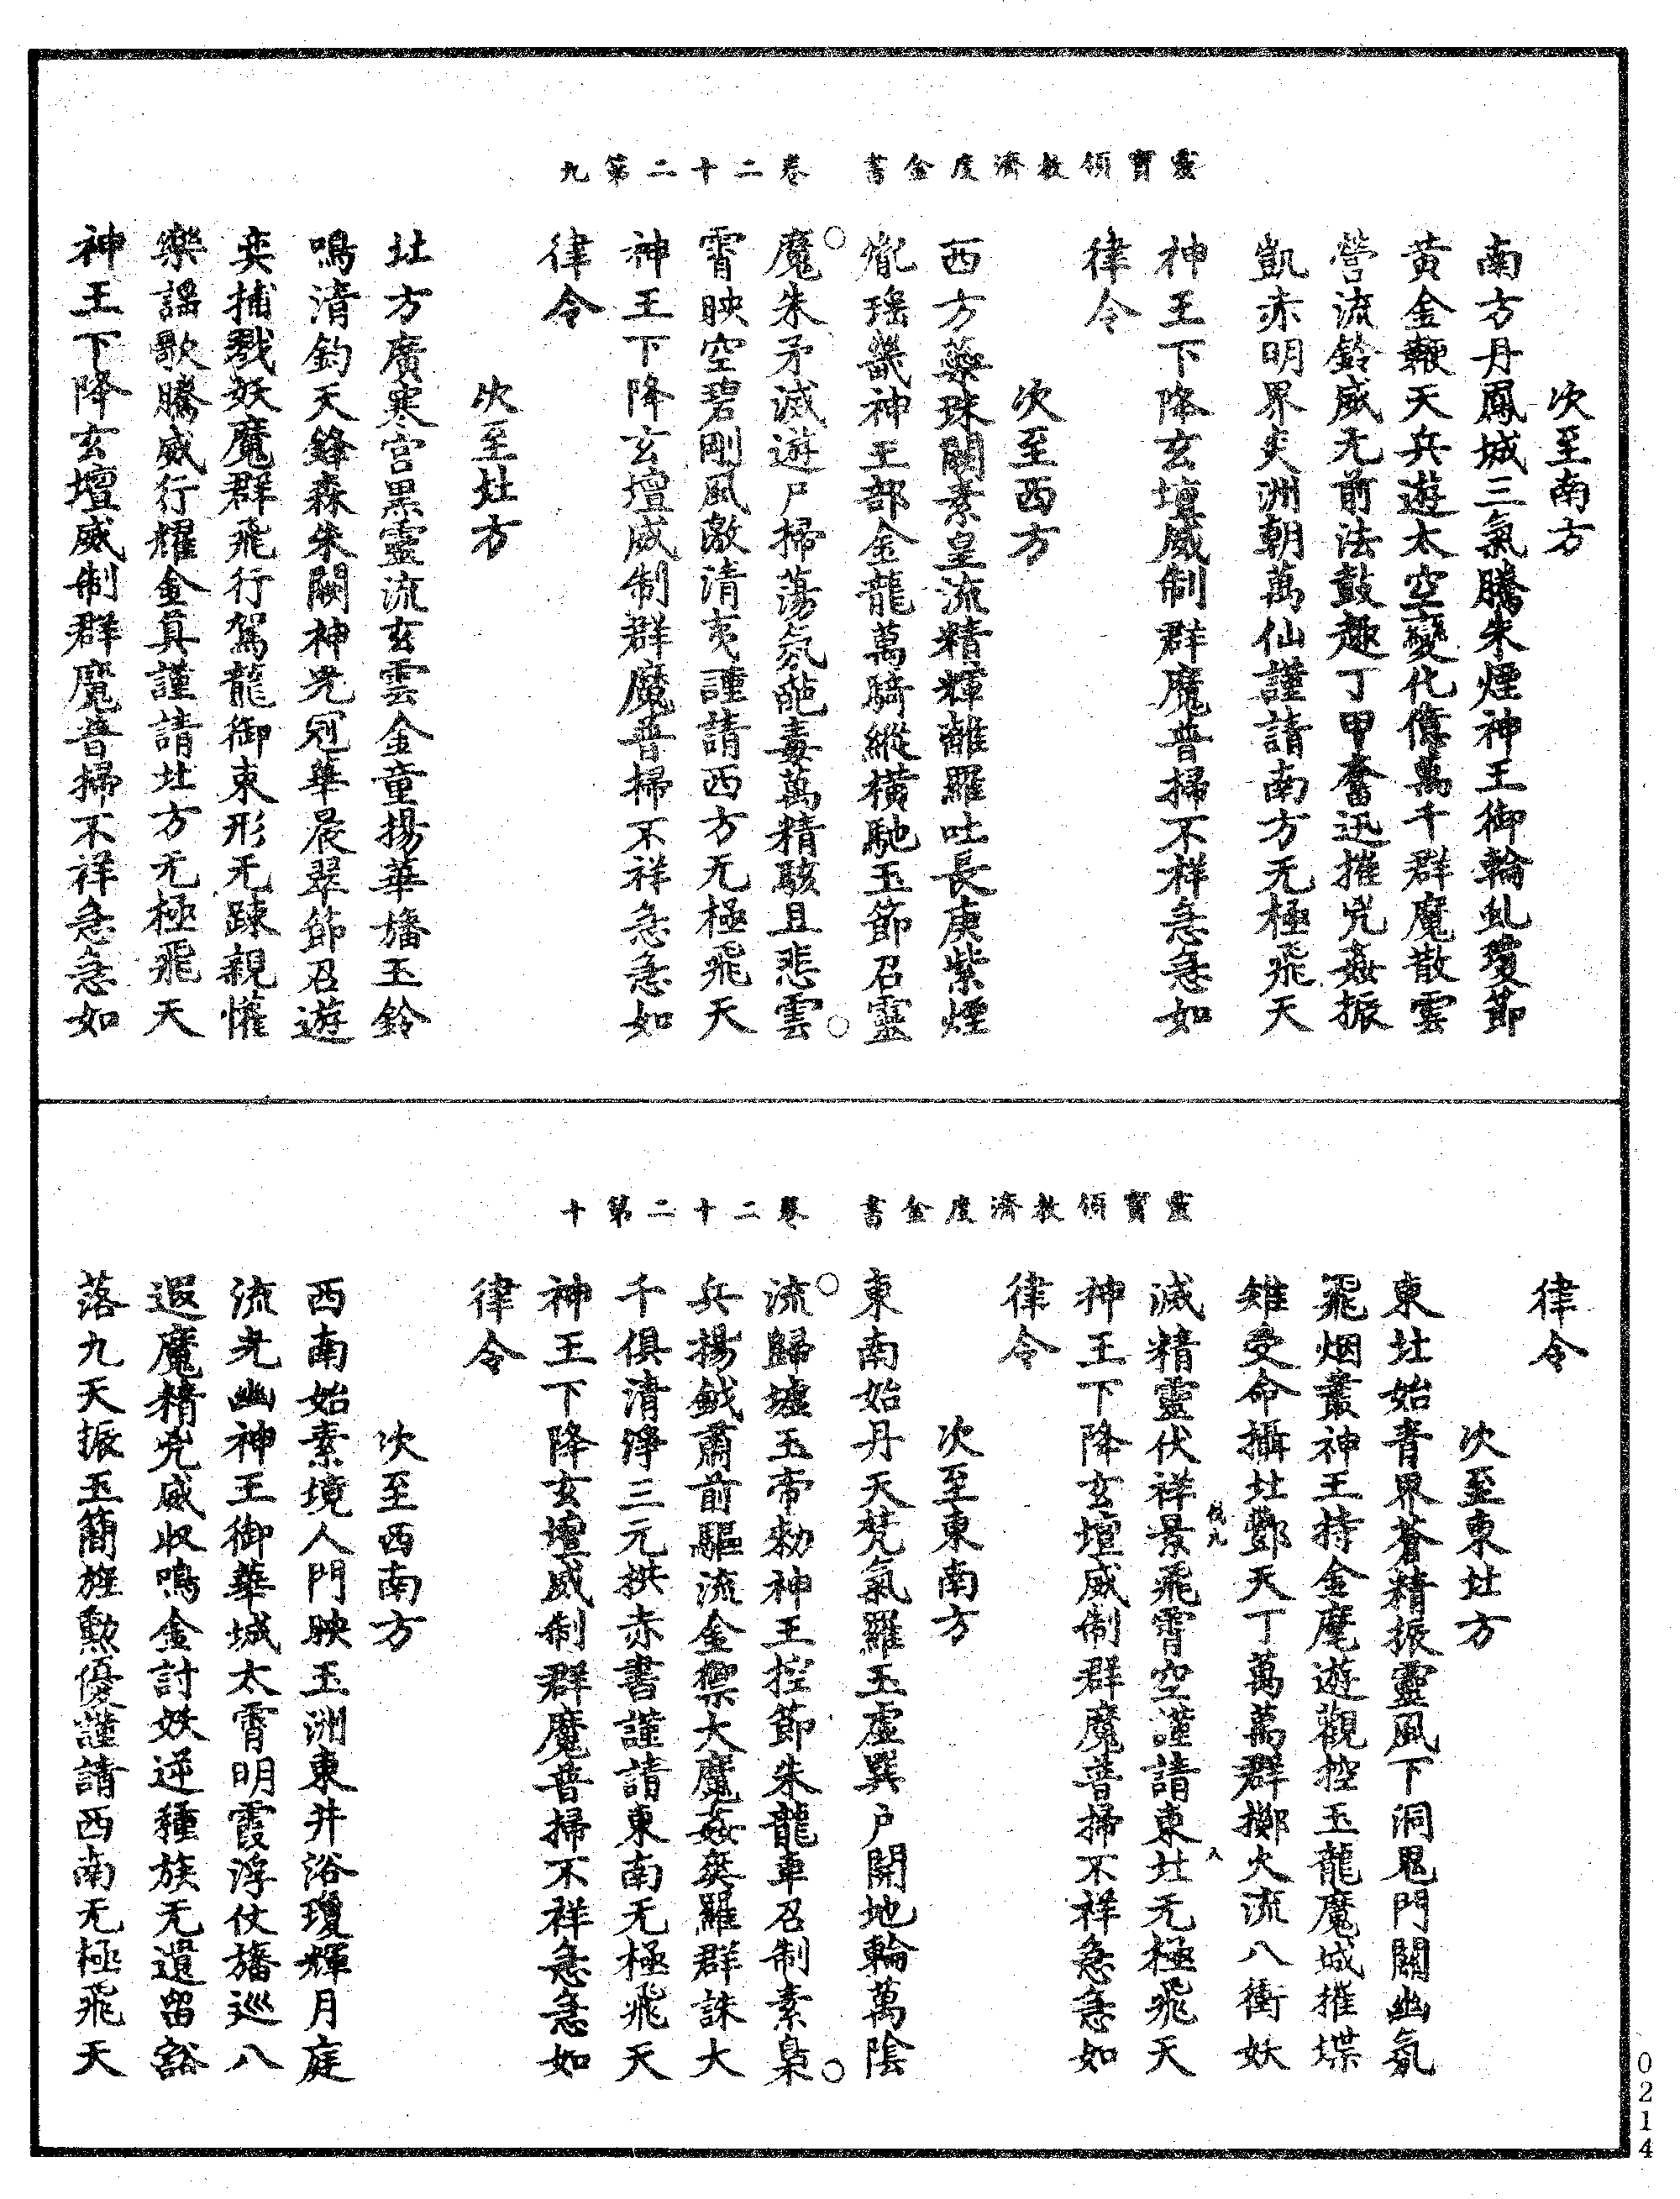 靈寶領教濟度金書　卷二十二第九
次至南方
南方丹鳳城三氣騰朱煙神王御輪虬瓊節
黃金鞭天兵遊太空變化億萬千群魔散雲
營流鈴威无前法鼓趣丁甲奮迅摧兇姦振
凱赤明界炎洲朝萬仙謹請南方无極飛天
神王下降玄壇威制群魔普掃不祥急急如
律令
次至西方
西方蘂珠闕素皇流精輝離羅吐長庚紫煙
胤瑶畿神王部金龍萬騎縱橫馳玉節召靈
魔朱矛滅遊尸掃蕩氛葩毒萬精駭且悲雲
霄映空碧剛風激清夷謹請西方无極飛天
神王下降玄壇威制群魔普掃不祥急急如
律令
次至北方
北方廣寒宮黑靈流玄雲金童揚華旛玉鈴
鳴清鈞天鋒森朱闕神光冠華晨翠節召遊
奕捕戮妖魔群飛行駕龍御束形无踈親懽
樂謡歌騰威行耀金真謹請北方无極飛天
神王下降玄壇威制群魔普掃不祥急急如
靈寶領教濟度金書　卷二十二第十
律令
次至東北方
東北始青界蒼精振靈風下洞鬼門關幽氛
飛烟叢神王持金麾遊觀控玉龍魔城摧堞
雉受命攝北酆天丁萬萬群擲火流八衝妖
滅精靈伏祥景飛霄空謹請東北无極飛天
神王下降玄壇威制群魔普掃不祥急急如
律令
次至東南方
東南始丹天梵氣羅玉虛巽戶開地輪萬陰
流歸墟玉帝勑神王控節朱龍車召制素梟
兵揚鉞肅前驅流金禦大魔姦奕羅群誅大
千俱清淨三元拱赤書謹請東南无極飛天
神王下降玄壇威制群魔普掃不祥急急如
律令
次至西南方
西南始素境人門映玉洲東井浴瓊輝月庭
流光幽神王御華城太霄明霞浮仗旛巡八
遐魔精兇威收鳴金討妖逆種族无遺留豁
落九天振玉簡旌勲優謹請西南无極飛天
0214